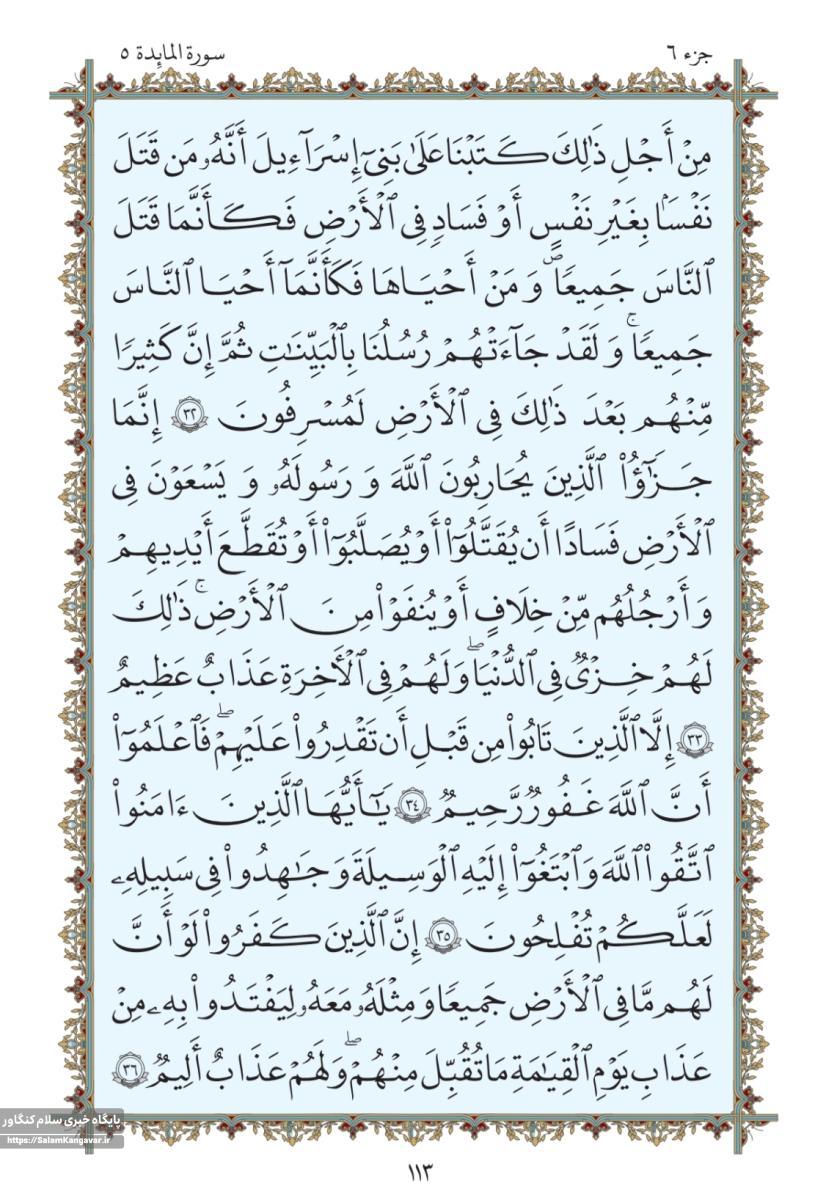 جزء ٦
سورة المائدة ٥
مِنْ أَجْلِ ذَٰلِكَ كَتَبْنَا عَلَىٰ بَنِىٓ إِسْرَآءِيلَ أَنَّهُۥ مَن قَتَلَ
نَفْسًۢا بِغَيْرِ نَفْسٍ أَوْ فَسَادٍ فِى ٱلْأَرْضِ فَكَأَنَّمَا قَتَلَ
ٱلنَّاسَ جَمِيعًاۖ وَ مَنْ أَحْيَاهَا فَكَأَنَّمَآ أَحْيَا ٱلنَّاسَ
جَمِيعًاۚ وَ لَقَدْ جَآءَتْهُمْ رُسُلُنَا بِٱلْبَيِّنَٰتِ ثُمَّ إِنَّ كَثِيرًا
مِّنْهُم بَعْدَ ذَٰلِكَ فِى ٱلْأَرْضِ لَمُسْرِفُونَ ٣٢ إِنَّمَا
جَزَٰٓؤُا۟ ٱلَّذِينَ يُحَارِبُونَ ٱللَّهَ وَ رَسُولَهُۥ وَ يَسْعَوْنَ فِى
ٱلْأَرْضِ فَسَادًا أَن يُقَتَّلُوٓا۟ أَوْ يُصَلَّبُوٓا۟ أَوْ تُقَطَّعَ أَيْدِيهِمْ
وَ أَرْجُلُهُم مِّنْ خِلَافٍ أَوْ يُنفَوْا۟ مِنَ ٱلْأَرْضِۚ ذَٰلِكَ
لَهُمْ خِزْىٌ فِى ٱلدُّنْيَاۖ وَ لَهُمْ فِى ٱلْأَخِرَةِ عَذَابٌ عَظِيمٌ
٣٣ إِلَّا ٱلَّذِينَ تَابُوا۟ مِن قَبْلِ أَن تَقْدِرُوا۟ عَلَيْهِمْۖ فَٱعْلَمُوٓا۟
أَنَّ ٱللَّهَ غَفُورٌ رَّحِيمٌ ٣٤ يَٰٓأَيُّهَا ٱلَّذِينَ ءَامَنُوا۟
ٱتَّقُوا۟ ٱللَّهَ وَ ٱبْتَغُوٓا۟ إِلَيْهِ ٱلْوَسِيلَةَ وَ جَٰهِدُوا۟ فِى سَبِيلِهِۦ
لَعَلَّكُمْ تُفْلِحُونَ ٣٥ إِنَّ ٱلَّذِينَ كَفَرُوا۟ لَوْ أَنَّ
لَهُم مَّا فِى ٱلْأَرْضِ جَمِيعًا وَ مِثْلَهُۥ مَعَهُۥ لِيَفْتَدُوا۟ بِهِۦ مِنْ
عَذَابِ يَوْمِ ٱلْقِيَٰمَةِ مَا تُقُبِّلَ مِنْهُمْۖ وَ لَهُمْ عَذَابٌ أَلِيمٌ ٣٦
پایگاه خبری سلام کنگاور
https://SalamKangavar.ir
١١٣